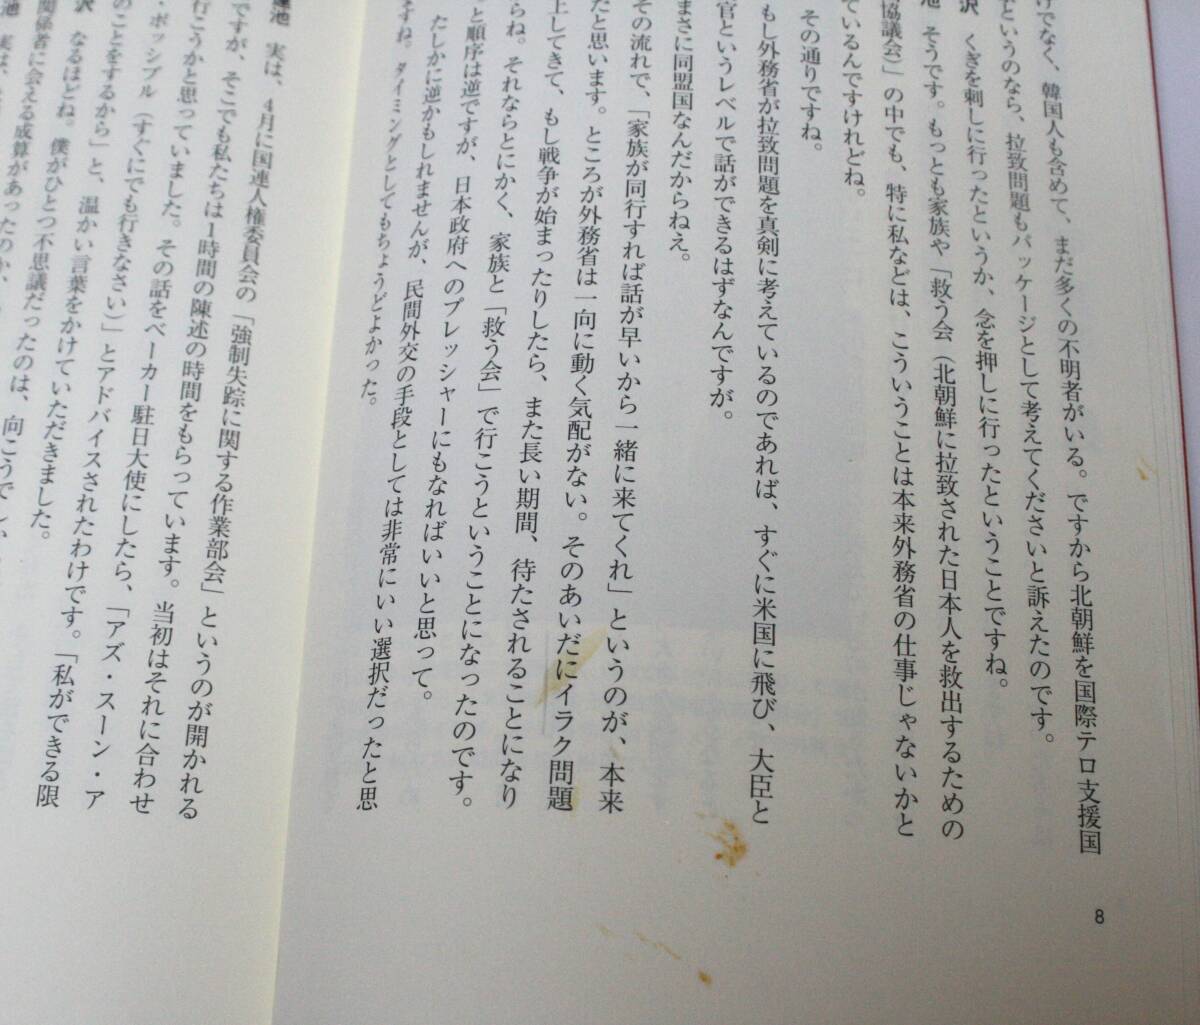 けでなく、韓国人も含めて、まだ多くの不明者がいる。ですから北朝鮮を国際テロ支援国
というのなら、拉致問題もパッケージとして考えてくださいと訴えたのです。
沢　くぎを刺しに行ったというか、念を押しに行ったということですね。
池　そうです。もっとも家族や「救う会（北朝鮮に拉致された日本人を救出するための
協議会）」の中でも、特に私などは、こういうことは本来外務省の仕事じゃないかと
ているんですけれどね。
その通りですね。
もし外務省が拉致問題を真剣に考えているのであれば、すぐに米国に飛び、大臣と
官というレベルで話ができるはずなんですが。
まさに同盟国なんだからねえ。
その流れで、「家族が同行すれば話が早いから一緒に来てくれ」というのが、本来
だと思います。ところが外務省は一向に動く気配がない。そのあいだにイラク問題
上してきて、もし戦争が始まったりしたら、また長い期間、待たされることになり
らね。それならとにかく、家族と「救う会」で行こうということになったのです。
と順序は逆ですが、日本政府へのプレッシャーにもなればいいと思って。
たしかに逆かもしれませんが、民間外交の手段としては非常にいい選択だったと思
すね。タイミングとしてもちょうどよかった。
8
蓮池　実は、4月に国連人権委員会の「強制失踪に関する作業部会」というのが開かれる
ですが、そこでも私たちは1時間の陳述の時間をもらっています。当初はそれに合わせ
行こうかと思っていました。その話をベーカー駐日大使にしたら、「アズ・スーン・ア
・ポッシブル（すぐにでも行きなさい）」とアドバイスされたわけです。「私ができる限
のことをするから」と、温かい言葉をかけていただきました。
沢　なるほどね。僕がひとつ不思議だったのは、向こうでし
関係者に会える成算があったのか、
池　実は、